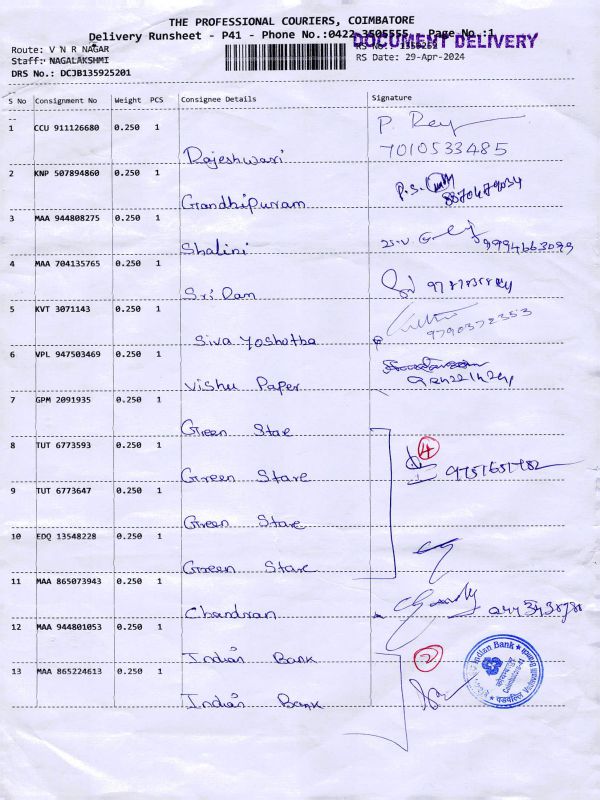 THE PROFESSIONAL COURIERS, COIMBATORE
Delivery Runsheet - P41 - Phone No.:0422-3505555 Page No.:1
DOCUMENT DELIVERY
Route: V N R NAGAR
Staff: NAGALAKSHMI
RS Date: 29-Apr-2024
DRS No.: DCJB135925201
S No Consignment No Weight PCS Consignee Details Signature
1 CCU 911126680 0.250 1
Rajeshwari 7010533485
2 KNP 507894860 0.250 1
Gandhipuram
3 MAA 944808275 0.250 1
Shalini 9994663099
4 MAA 704135765 0.250 1
Sri Ram
5 KVT 3071143 0.250 1
Siva Yoshotha 9790372353
6 VPL 947503469 0.250 1
Vishu Paper
7 GPM 2091935 0.250 1
Green Stare
8 TUT 6773593 0.250 1 4
Green Stare
9 TUT 6773647 0.250 1
Green Stare
10 EDQ 13548228 0.250 1
Green Stare
11 MAA 865073943 0.250 1
Chandran
12 MAA 944801053 0.250 1
Indian Bank 2
13 MAA 865224613 0.250 1
Indian Bank
Indian Bank